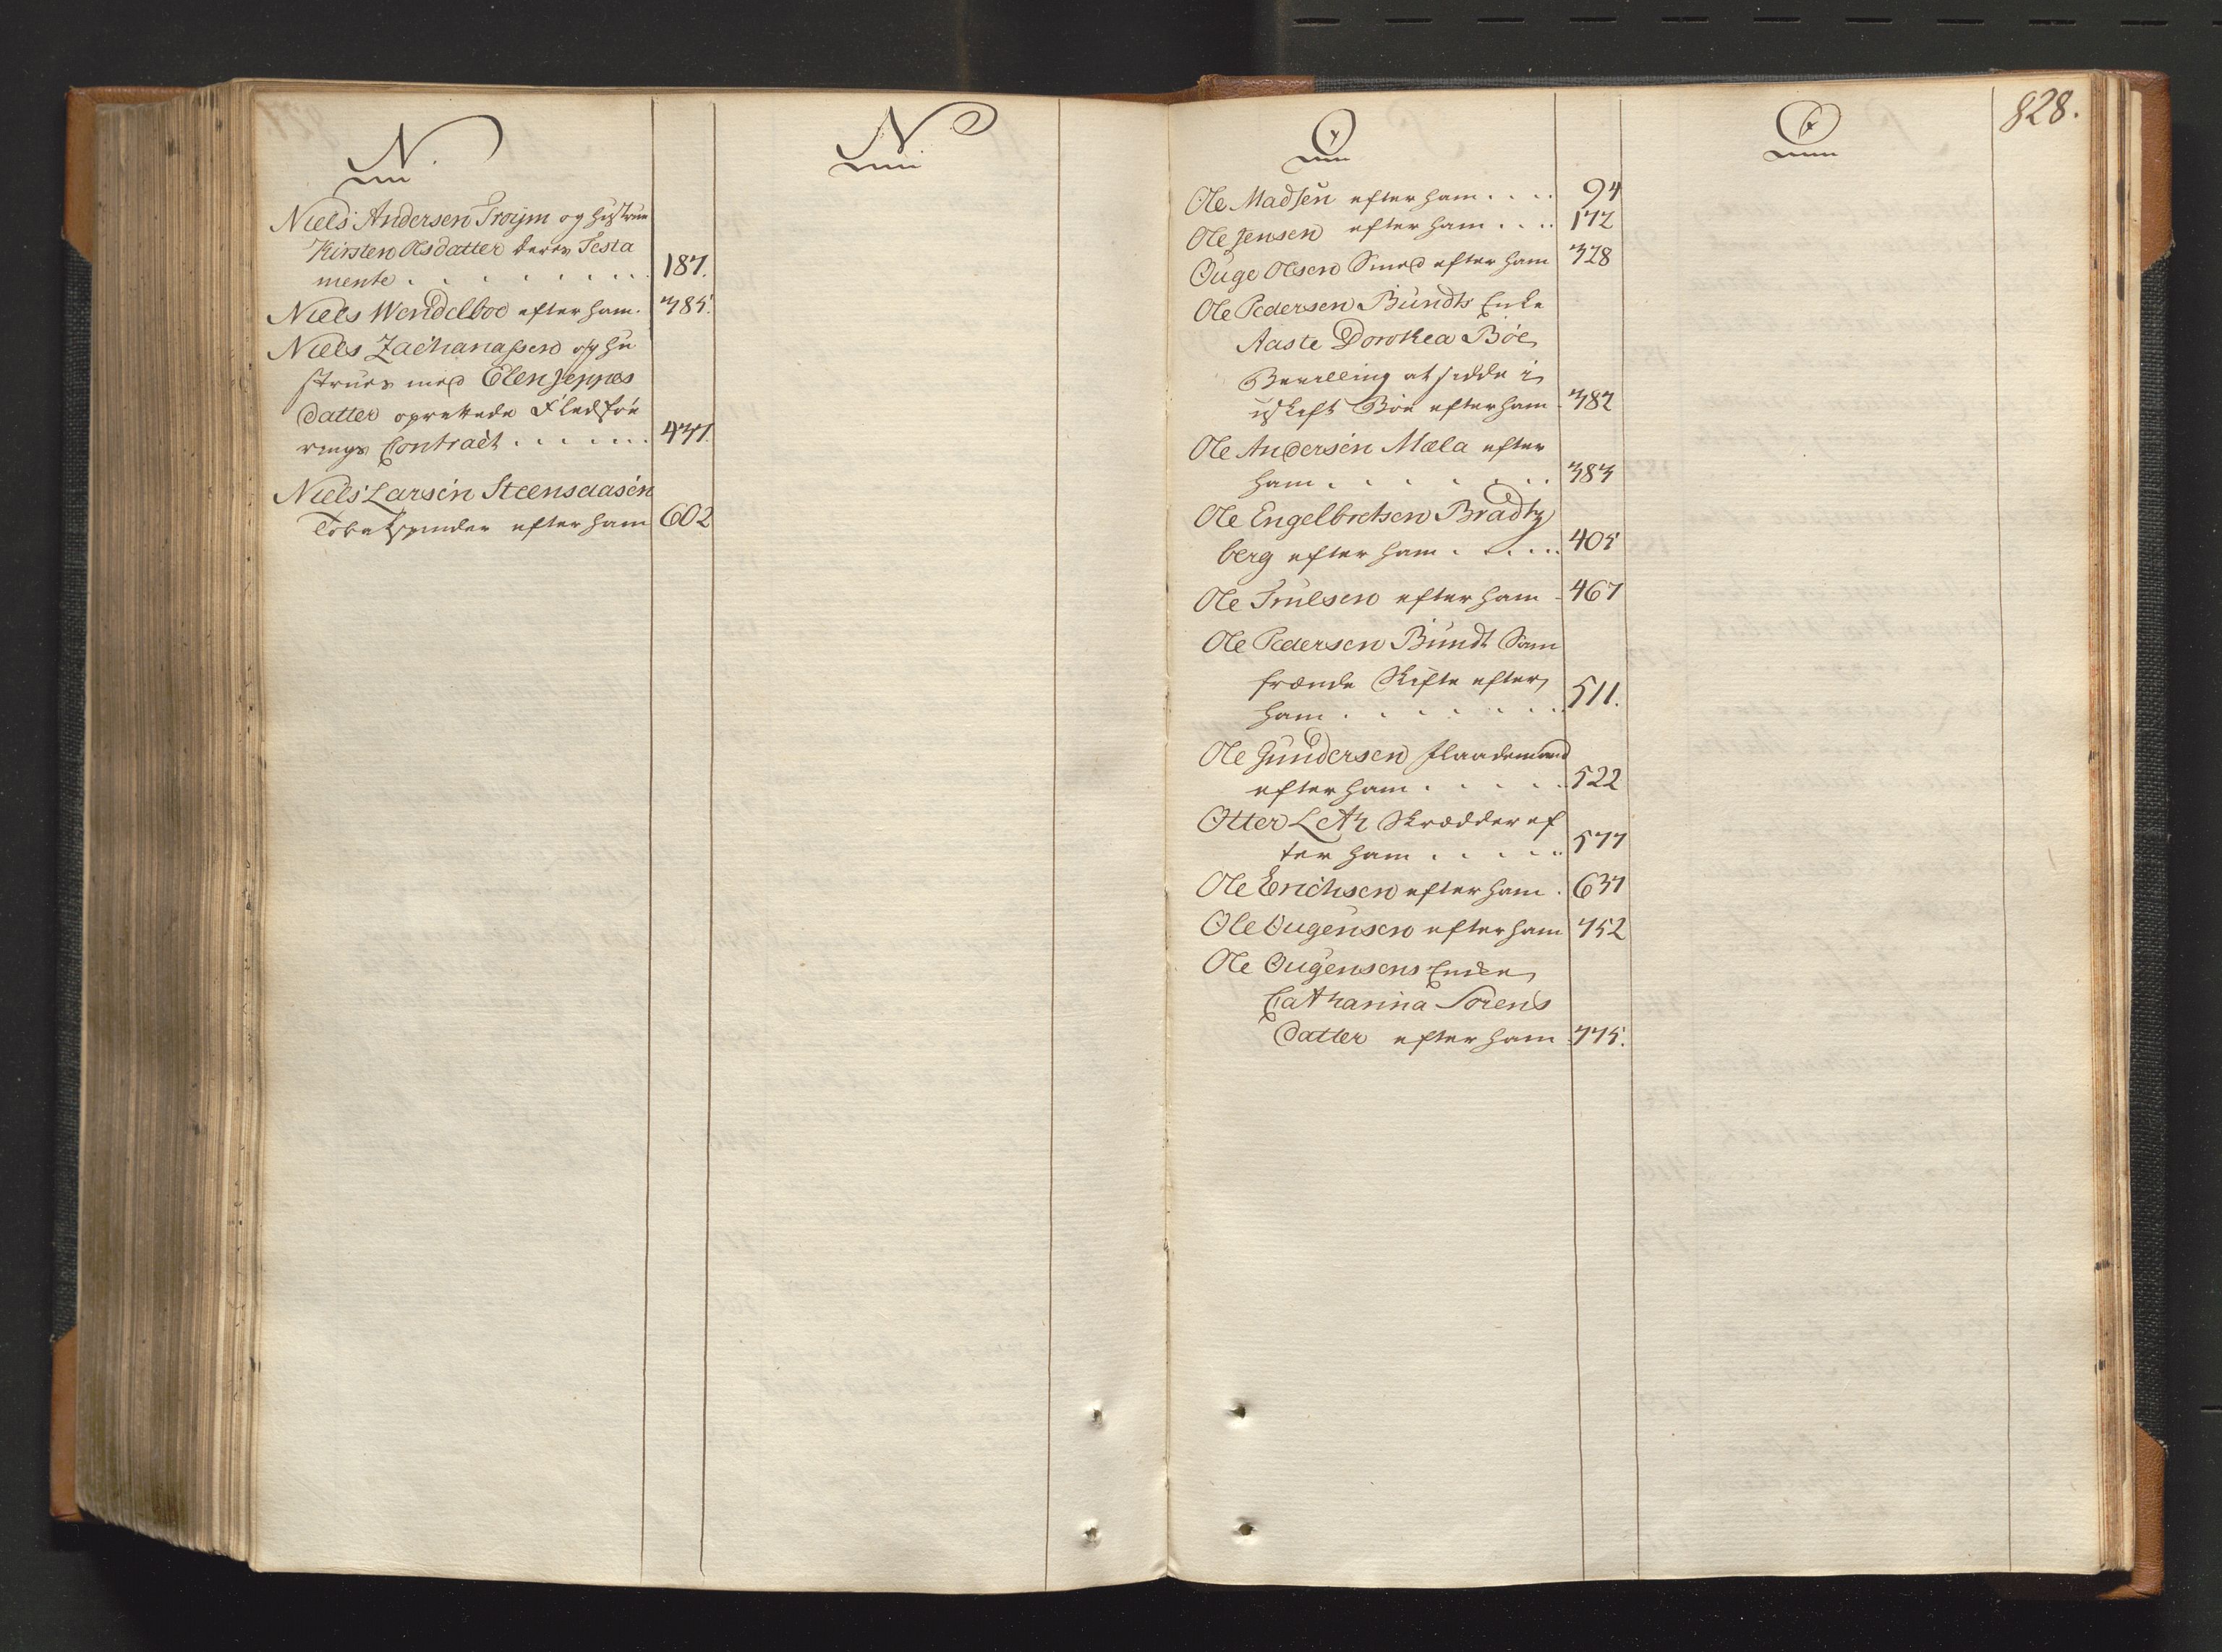 N.
Niels Andersen Troijm og Hustrue
Kirsten Olsdatter deres Testa
mente . . . . . . . . 187.
Niels Wendelboe efter ham. 385.
Niels Zachariassen og Hu
strues med Elen Jeppes
datter oprettede Fledføe
rings Contract . . . . . . 437.
Niels Larsen Steensaasen
Tobakspinder efter ham 602
N
O
Ole Madsen efter ham . . . . 94
Ole Jensen efter ham . . . . 172
Ouge Olsen Smed efter ham 328
Ole Pedersen Bundts Enke
Aaste Dorothea Böe
Bevilling at sidde i
uskift Boe efter ham 382
Ole Andersen Mæla efter
ham . . . . . . . 383
Ole Engelbretsen Bradtz
berg efter ham . . . . . 405
Ole Trulsen efter ham - 467
Ole Pedersen Bundt Sam
frænde Skifte efter
ham . . . . . . . 511.
Ole Gundersen Flaademand
efter ham . . . . . 522
Otter Leth Skrædder ef
ter ham . . . . . 577
Ole Erichsen efter ham . 637
Ole Ougensen efter ham 752
Ole Ougensens Enke
Catharina Sorens
datter efter ham 775.
O
828.